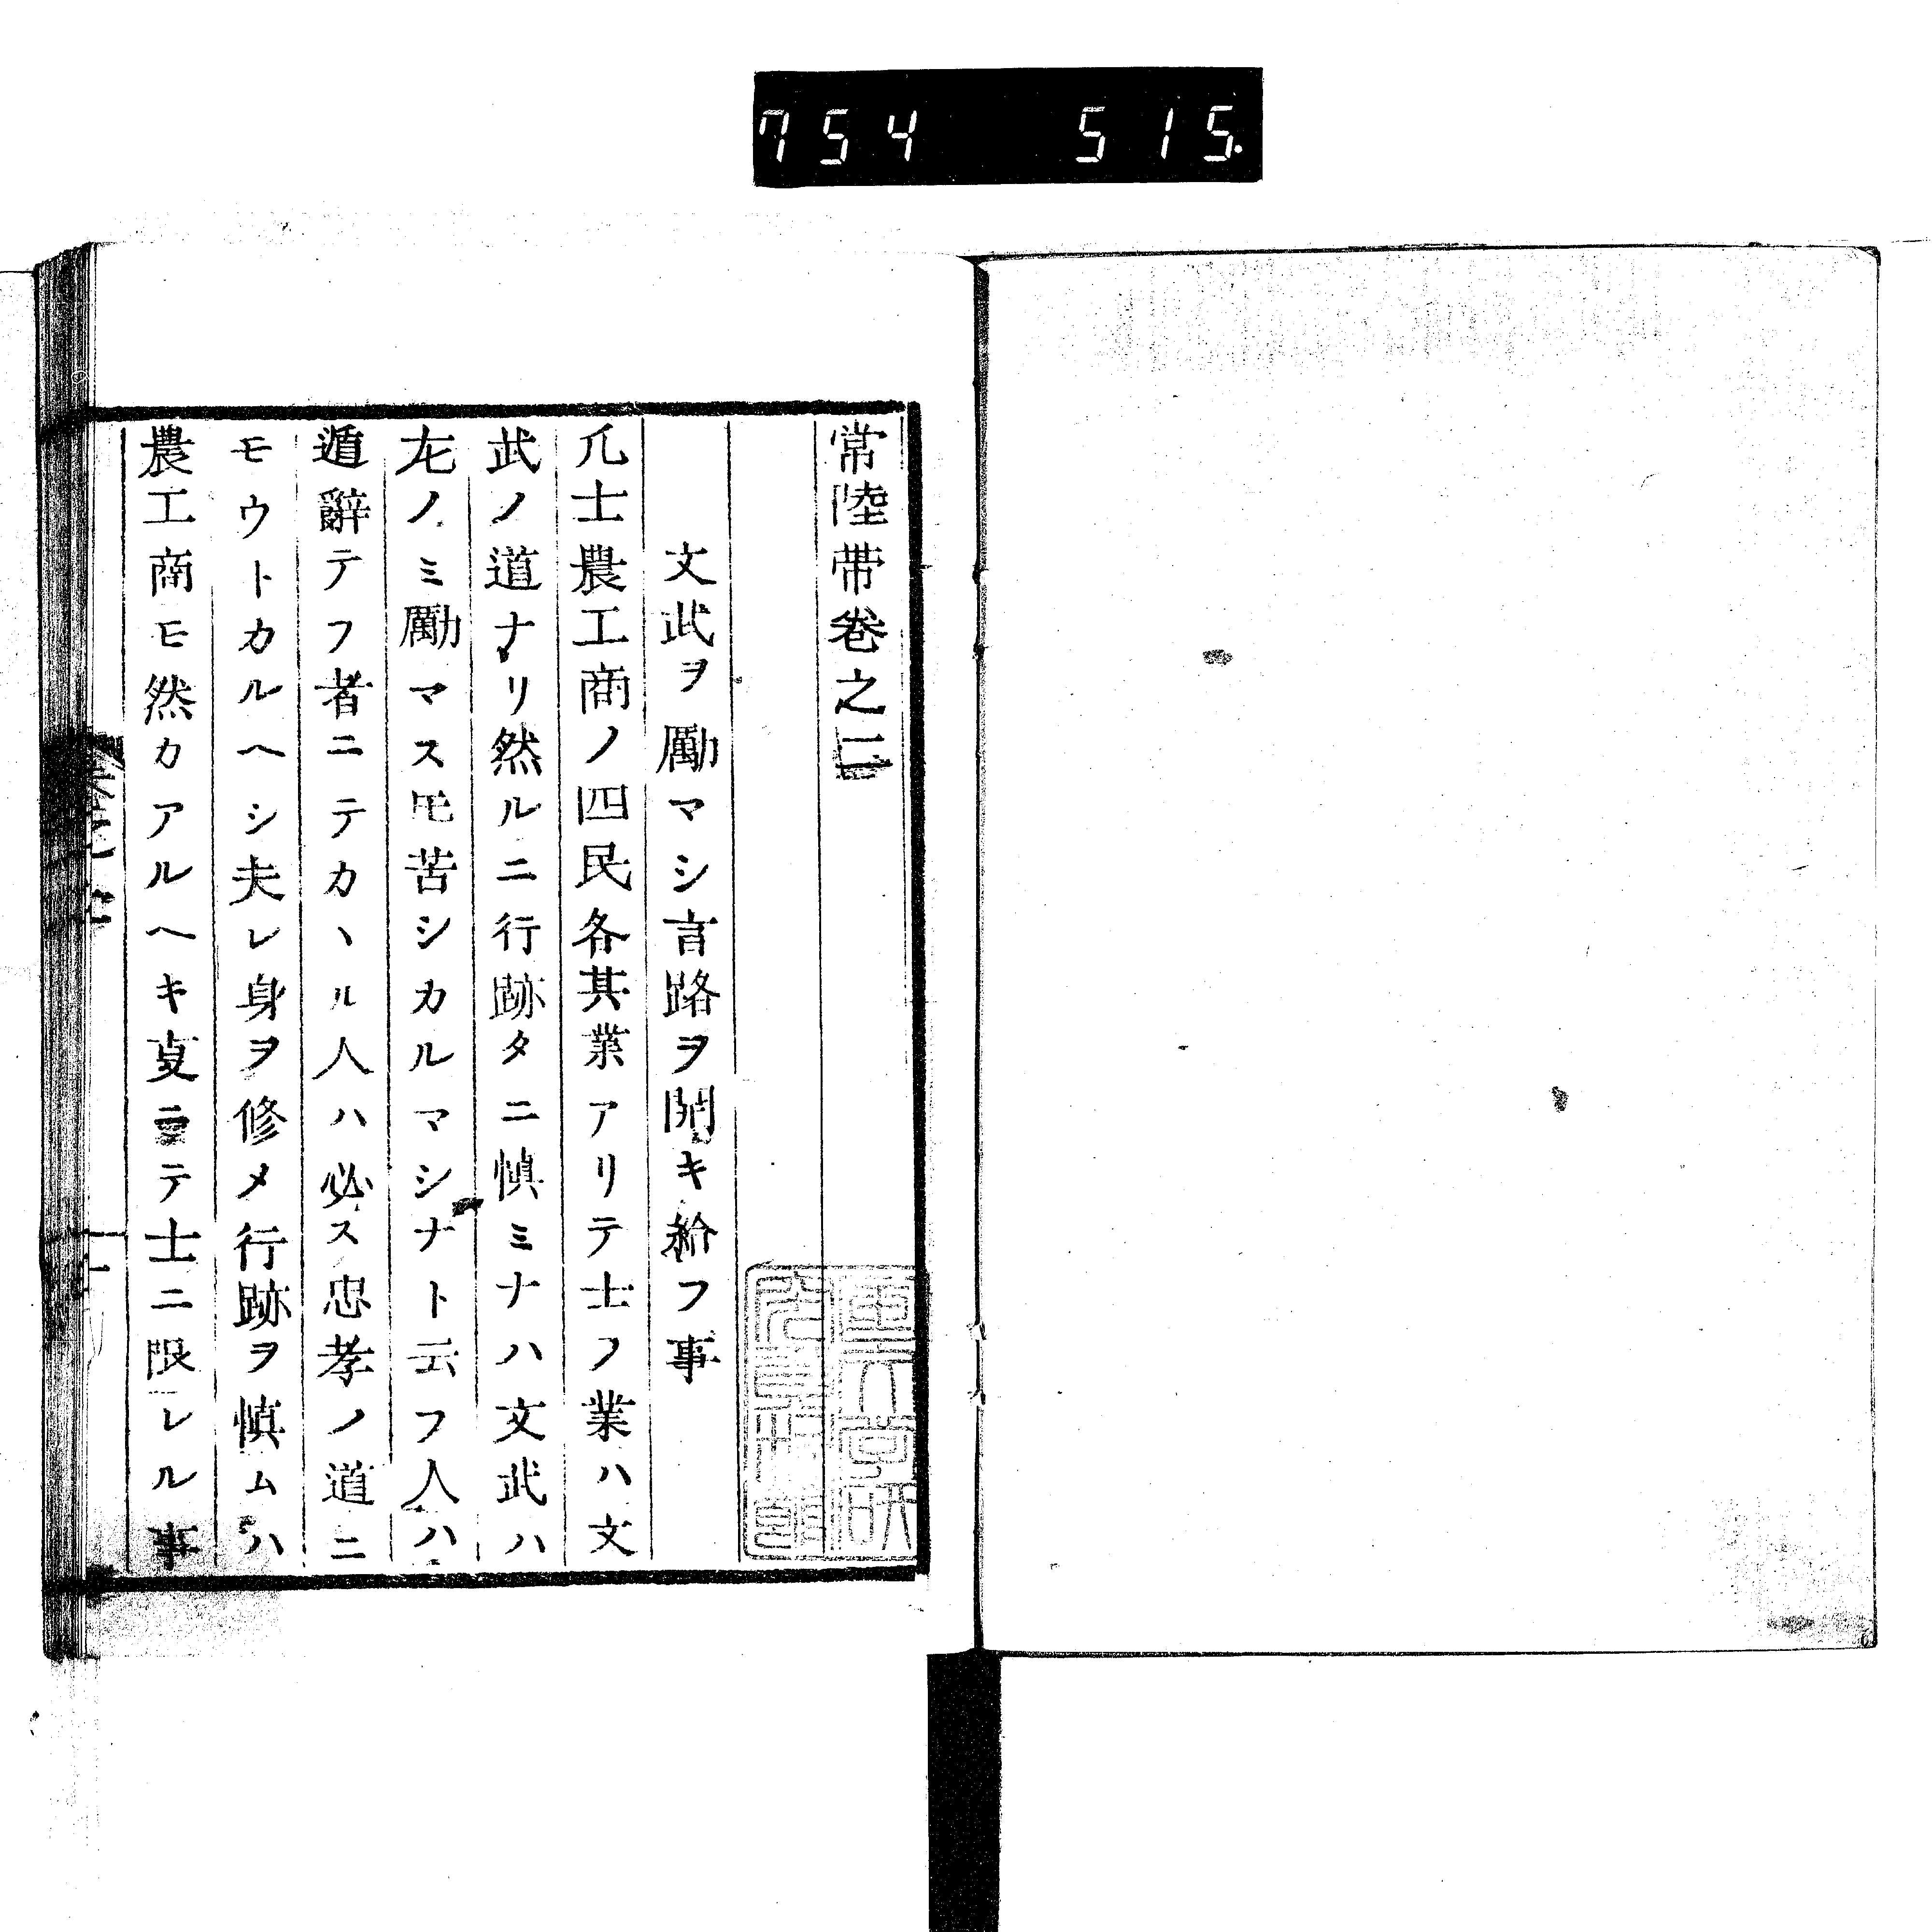 754 515.
常陸帯卷之二
文武ヲ勵マシ言路ヲ開キ給フ事
凢士農工商ノ四民各其業アリテ士ノ業ハ文
武ノ道ナリ然ルニ行跡タニ愼ミナハ文武ハ
左ノミ勵マス𪜈苦シカルマシナト云フ人ハ
遁辭テフ者ニテカヽル人ハ必ス忠孝ノ道ニ
モウトカルヘシ夫レ身ヲ修メ行跡ヲ愼ムハ
農工商モ然カアルヘキ叓ニテ士ニ限レル事